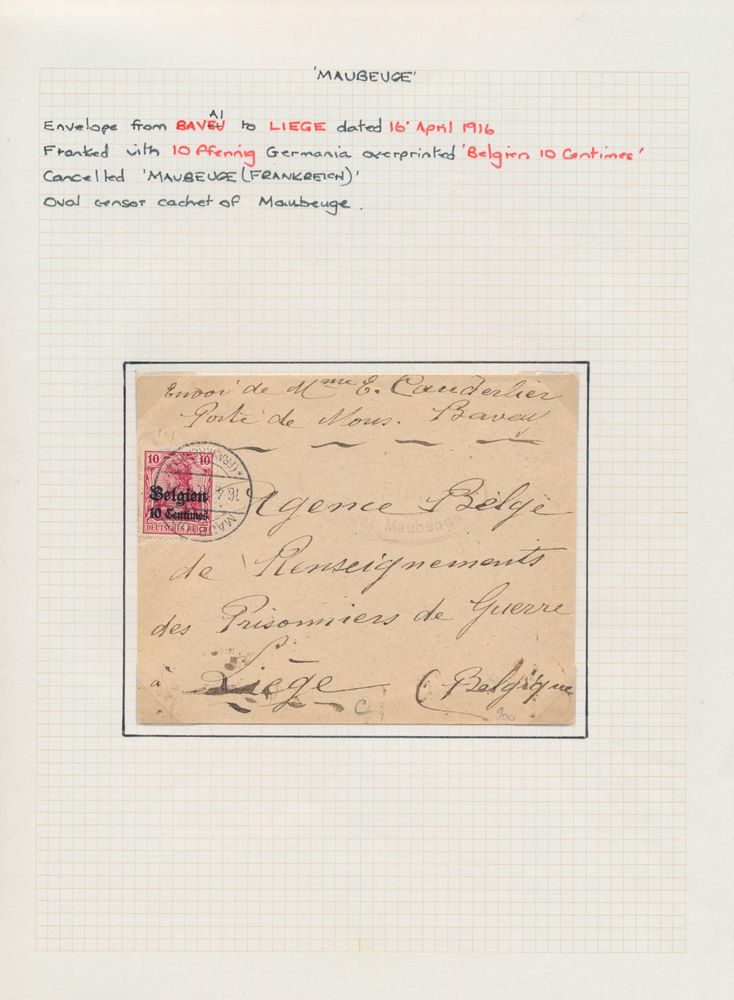 'MAUBEUGE'
AI
Envelope from BAVEU to LIEGE dated 16' April 1916
Franked with 10 Pfennig Germania overprinted 'Belgien 10 Centimes'
Cancelled 'MAUBEUGE (FRANKREICH)'
Oval censor cachet of Maubeuge.
Envoi de Mme E. Cauderlier
Porte de Mons. Bavay
10 10
Belgien
10 Centimes
DEUTSCHES REICH
16.4
Maubeuge
Agence Belge
de Renseignements
des Prisonniers de Guerre
à Liège (Belgique
C 900